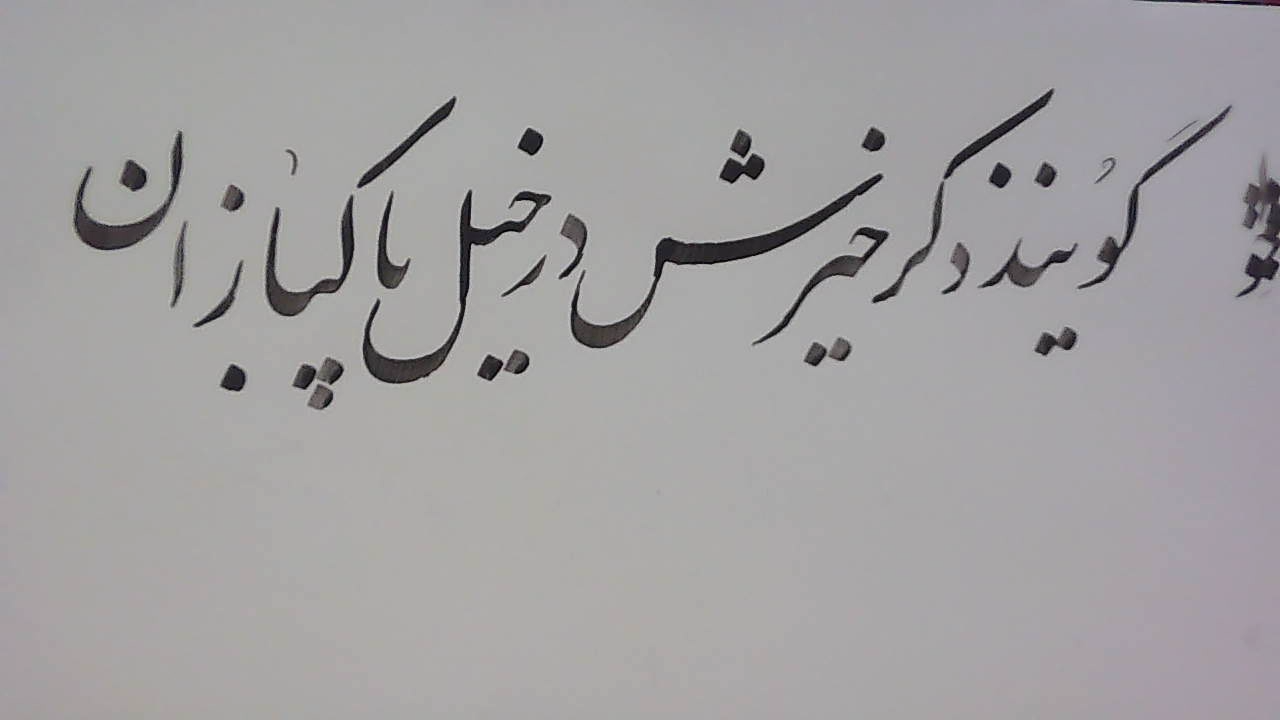 گویند ذکر خیرش در خیل پاکبازان